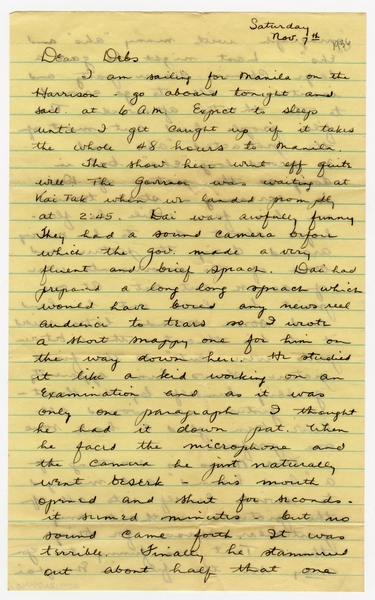 Saturday
Nov. 7th 1936
Dear Debs
I am sailing for Manila on the
Harrison - go aboard tonight and
sail at 6 A.M. Expect to sleep
until I get caught up if it takes
the whole 48 hours to Manila.
The show here went off quite
well The Govnor was waiting at
Kai Tak when we landed promptly
at 2:45. Dai was awfully funny
They had a sound camera before
which the gov. made a very
fluent and brief speach. Dai had
prepared a long long speach which
would have bored any news reel
audience to tears so I wrote
a short snappy one for him on
the way down here. He studied
it like a kid working on an
Examination and as it was
only one paragraph I thought
he had it down pat. When
he faced the microphone and
the camera he just naturally
went beserk - his mouth
opened and shut for seconds -
it seemed minutes - but no
sound came forth It was
terrible. Finally he stammered
out about half that one